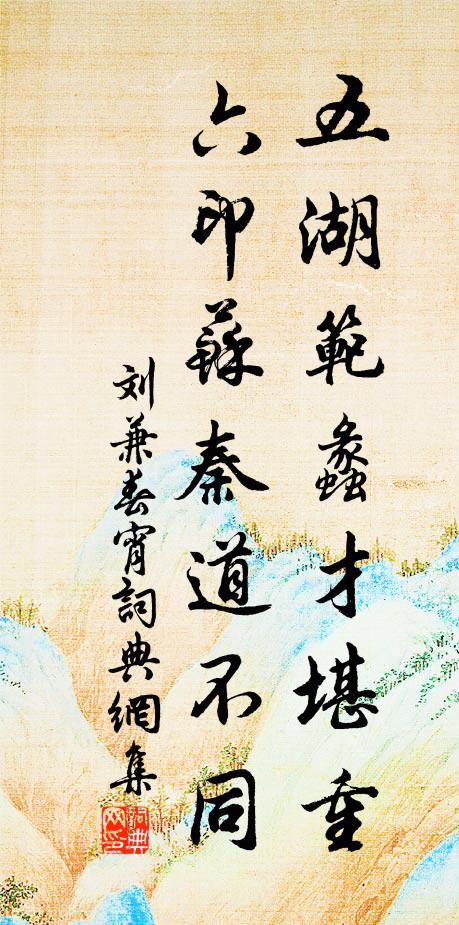 五湖範蠡才堪重
六印蘇秦道不同
刘兼春宵詞典網集
詞典网印